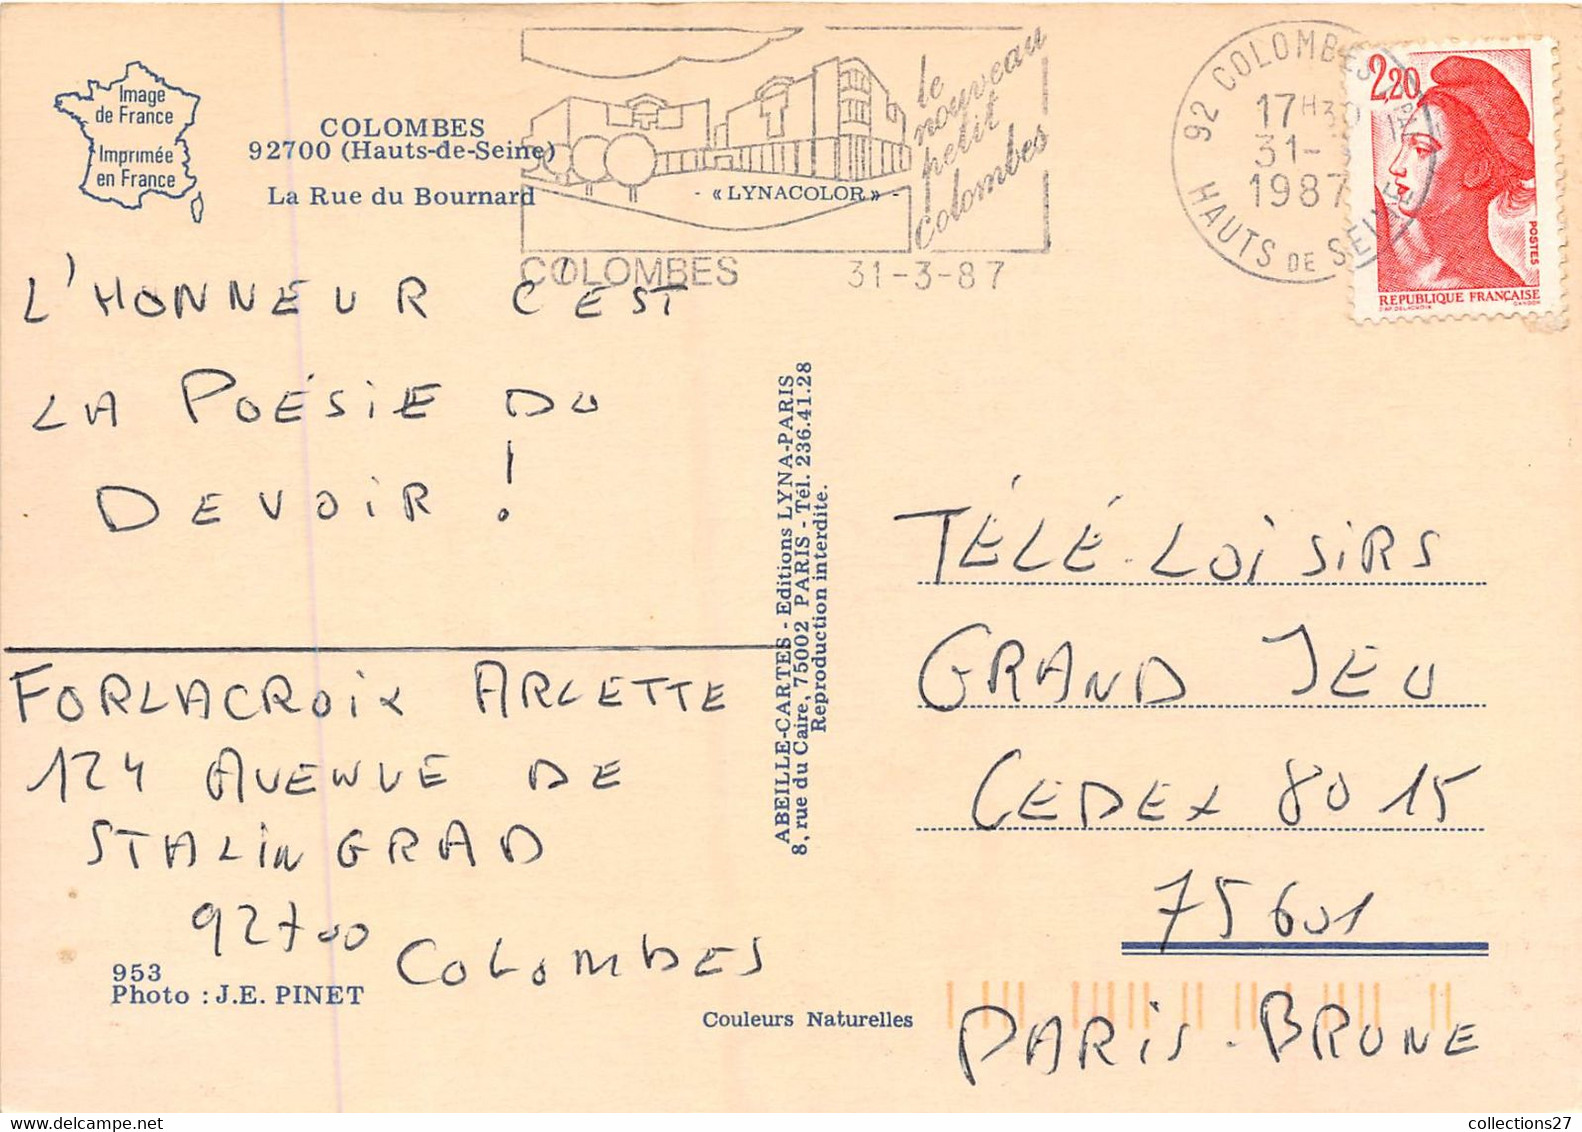 Image
de France
Imprimée
en France
COLOMBES
92700 (Hauts-de-Seine)
La Rue du Bournard
« LYNACOLOR »
le
nouveau
petit
Colombes
COLOMBES 31-3-87
92 COLOMBES
17H30
31-
1987
HAUTS DE SEINE
2,20
POSTES
REPUBLIQUE FRANÇAISE
L'HONNEUR C'EST
LA POÉSIE DU
DEVOIR !
FORLACROIX ARLETTE
124 AVENUE DE
STALINGRAD
92700 COLOMBES
953
Photo : J.E. PINET
ABEILLE-CARTES - Editions LYNA-PARIS
8, rue du Caire, 75002 PARIS - Tél. 236.41.28
Reproduction interdite.
Couleurs Naturelles
TÉLÉ-LOISIRS
GRAND JEU
CEDEX 8015
75601
PARIS-BRUNE
collections27